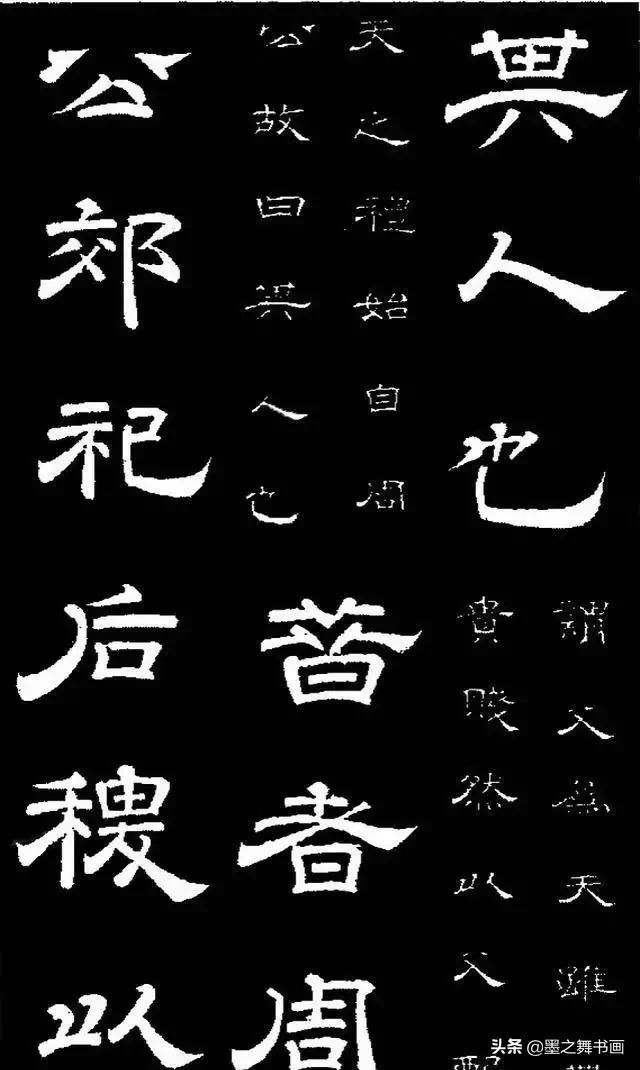 其人也
謂父為天雖
貴賤然以父配
天之禮始自周
公故曰其人也
昔者周
公郊祀后稷以
头条 @墨之舞书画